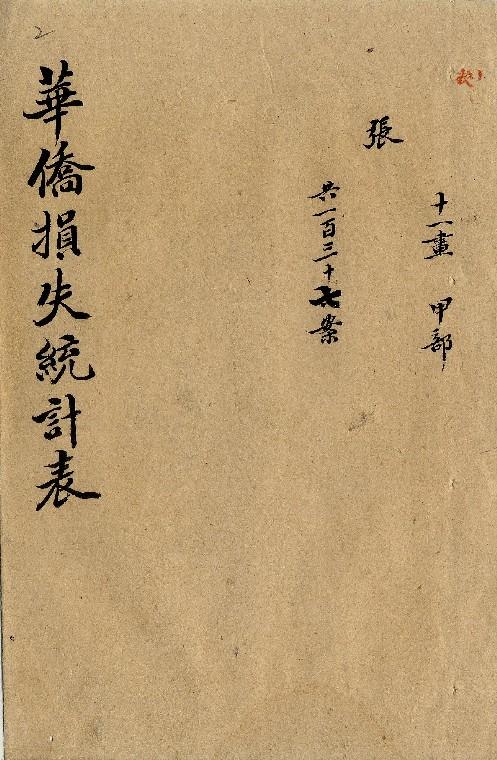 十一畫 甲部
張
共一百三十七案
華僑損失統計表
2